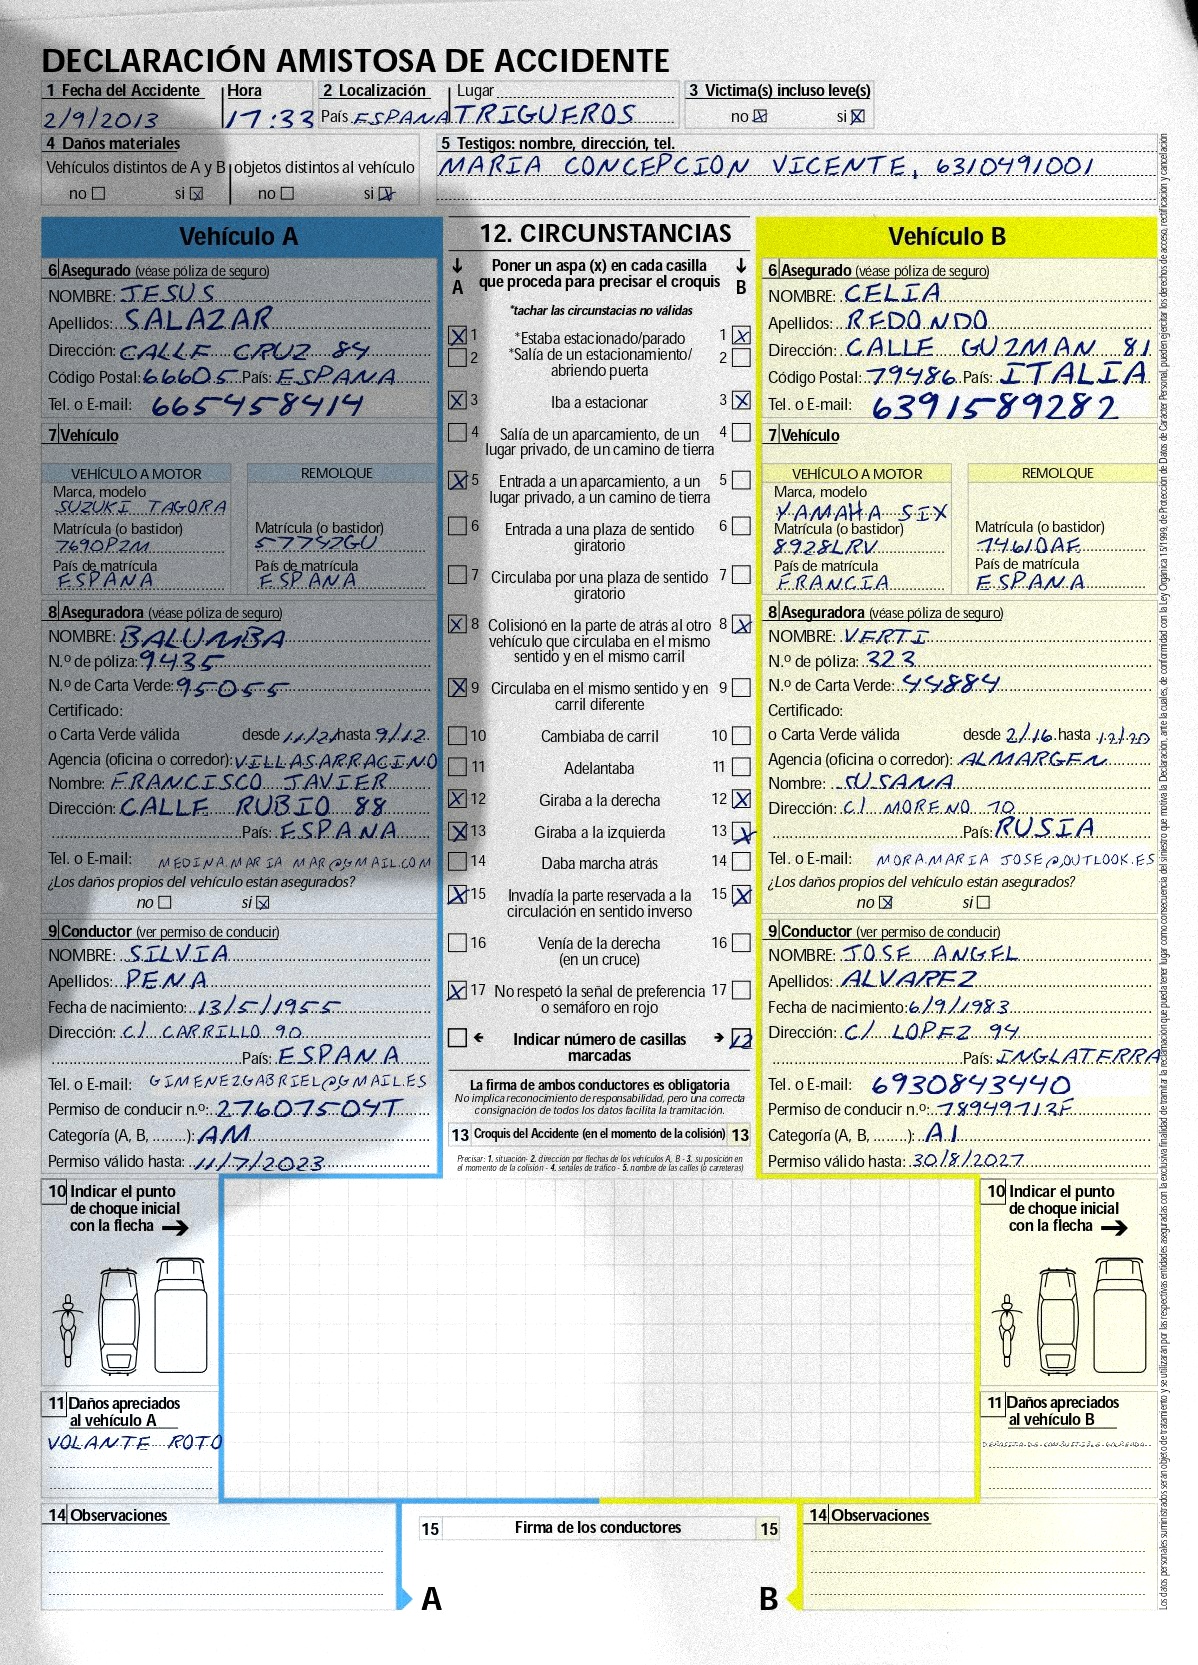 DECLARACIÓN AMISTOSA DE ACCIDENTE
1 Fecha del Accidente Hora 2 Localización Lugar 3 Victima(s) incluso leve(s)
2/9/2013 17:33 País ESPANA TRIGUEROS no ☒ si ☒
4 Daños materiales
Vehículos distintos de A y B objetos distintos al vehículo
no ☐ si ☒ no ☐ si ☒
5 Testigos: nombre, dirección, tel.
MARIA CONCEPCION VICENTE, 6310491001
Vehículo A
6 Asegurado (véase póliza de seguro)
NOMBRE: JESUS
Apellidos: SALAZAR
Dirección: CALLE CRUZ 84
Código Postal: 66605 País: ESPANA
Tel. o E-mail: 665458414
7 Vehículo
VEHÍCULO A MOTOR REMOLQUE
Marca, modelo
SUZUKI TAGORA
Matrícula (o bastidor) Matrícula (o bastidor)
7690PZM 57752GU
País de matrícula País de matrícula
ESPANA ESPANA
8 Aseguradora (véase póliza de seguro)
NOMBRE: BALUMBA
N.º de póliza: 9435
N.º de Carta Verde: 95055
Certificado:
o Carta Verde válida desde 11/21 hasta 9/12
Agencia (oficina o corredor): VILLASARRACINO
Nombre: FRANCISCO JAVIER
Dirección: CALLE RUBIO 88
País: ESPANA
Tel. o E-mail: MEDINA.MARIA MAR@GMAIL.COM
¿Los daños propios del vehículo están asegurados?
no ☐ si ☒
9 Conductor (ver permiso de conducir)
NOMBRE: SILVIA
Apellidos: PENA
Fecha de nacimiento: 13/5/1955
Dirección: C/ CARRILLO 90
País: ESPANA
Tel. o E-mail: GIMENEZGABRIEL@GMAIL.ES
Permiso de conducir n.º: 27607504T
Categoría (A, B, ........): AM
Permiso válido hasta: 11/7/2023
12. CIRCUNSTANCIAS
↓ Poner un aspa (x) en cada casilla ↓
A que proceda para precisar el croquis B
*tachar las circunstacias no válidas
☒ 1 *Estaba estacionado/parado 1 ☒
☐ 2 *Salía de un estacionamiento/ 2 ☐
abriendo puerta
☒ 3 Iba a estacionar 3 ☒
☐ 4 Salía de un aparcamiento, de un 4 ☐
lugar privado, de un camino de tierra
☒ 5 Entrada a un aparcamiento, a un 5 ☐
lugar privado, a un camino de tierra
☐ 6 Entrada a una plaza de sentido 6 ☐
giratorio
☐ 7 Circulaba por una plaza de sentido 7 ☐
giratorio
☒ 8 Colisionó en la parte de atrás al otro 8 ☒
vehículo que circulaba en el mismo
sentido y en el mismo carril
☒ 9 Circulaba en el mismo sentido y en 9 ☐
carril diferente
☐ 10 Cambiaba de carril 10 ☐
☐ 11 Adelantaba 11 ☐
☒ 12 Giraba a la derecha 12 ☒
☒ 13 Giraba a la izquierda 13 ☒
☐ 14 Daba marcha atrás 14 ☐
☒ 15 Invadía la parte reservada a la 15 ☒
circulación en sentido inverso
☐ 16 Venía de la derecha 16 ☐
(en un cruce)
☒ 17 No respetó la señal de preferencia 17 ☐
o semáforo en rojo
☐ ← Indicar número de casillas → 12
marcadas
La firma de ambos conductores es obligatoria
No implica reconocimiento de responsabilidad, pero una correcta
consignación de todos los datos facilita la tramitación.
13 Croquis del Accidente (en el momento de la colisión) 13
Precisar: 1. situación- 2. dirección por flechas de los vehículos A, B - 3. su posición en
el momento de la colisión - 4. señales de tráfico - 5. nombre de las calles (o carreteras)
Vehículo B
6 Asegurado (véase póliza de seguro)
NOMBRE: CELIA
Apellidos: REDONDO
Dirección: CALLE GUZMAN 81
Código Postal: 79486 País: ITALIA
Tel. o E-mail: 6391589282
7 Vehículo
VEHÍCULO A MOTOR REMOLQUE
Marca, modelo
YAMAHA SIX
Matrícula (o bastidor) Matrícula (o bastidor)
8928LRV 7461DAE
País de matrícula País de matrícula
FRANCIA ESPANA
8 Aseguradora (véase póliza de seguro)
NOMBRE: VERTI
N.º de póliza: 323
N.º de Carta Verde: 44884
Certificado:
o Carta Verde válida desde 2/16 hasta 12/20
Agencia (oficina o corredor): ALMARGEN
Nombre: SUSANA
Dirección: C/ MORENO 70
País: RUSIA
Tel. o E-mail: MORA.MARIA JOSE@OUTLOOK.ES
¿Los daños propios del vehículo están asegurados?
no ☒ si ☐
9 Conductor (ver permiso de conducir)
NOMBRE: JOSE ANGEL
Apellidos: ALVAREZ
Fecha de nacimiento: 6/9/1983
Dirección: C/ LOPEZ 94
País: INGLATERRA
Tel. o E-mail: 6930843440
Permiso de conducir n.º: 78949713F
Categoría (A, B, ........): A1
Permiso válido hasta: 30/8/2027
10 Indicar el punto
de choque inicial
con la flecha →
11 Daños apreciados
al vehículo A
VOLANTE ROTO
10 Indicar el punto
de choque inicial
con la flecha →
11 Daños apreciados
al vehículo B
14 Observaciones
15 Firma de los conductores 15
A B
14 Observaciones
Los datos personales suministrados seran objeto de tratamiento y se utilizaran por las respectivas entidades aseguradas con la exclusiva finalidad de tramitar la reclamación que pueda tener lugar como consecuencia del siniestro que motiva la Declaración, ante la cuales, de conformidad con la Ley Orgánica 15/1999, de Protección de Datos de Carácter Personal, pueden ejercitar los derechos de acceso, rectificación y cancelación